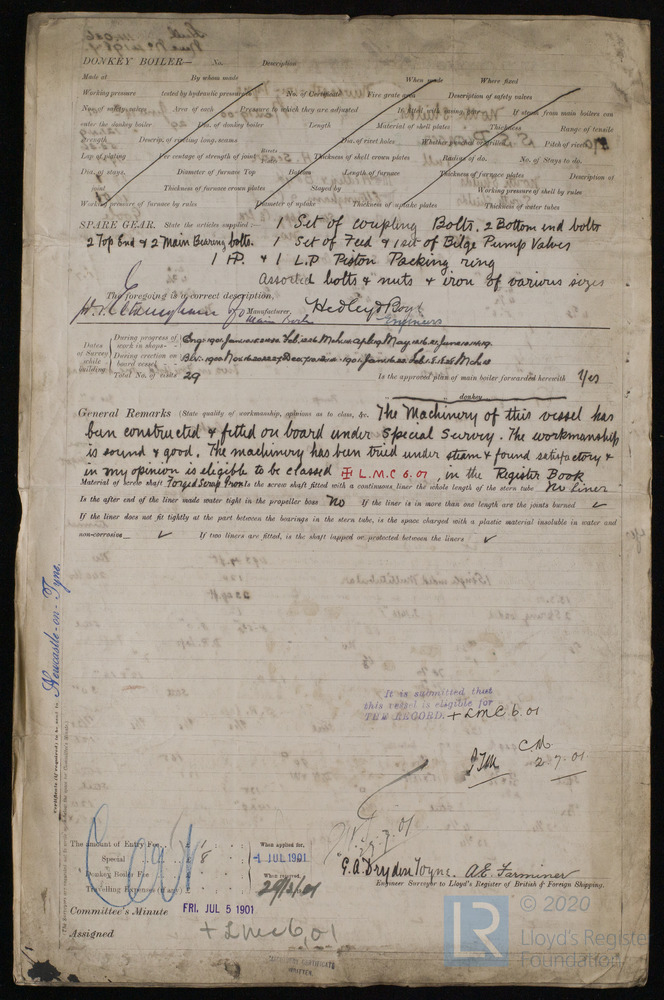 DONKEY BOILER— No. Description
Made at By whom made When made Where fixed
Working pressure tested by hydraulic pressure to No. of Certificate Fire grate area Description of safety valves
No. of safety valves Area of each Pressure to which they are adjusted If fitted with casing gear If steam from main boilers can
enter the donkey boiler Dia. of donkey boiler Length Material of shell plates Thickness Range of tensile
strength Descrip. of riveting long. seams Dia. of rivet holes Whether punched or drilled Pitch of rivets
Lap of plating Per centage of strength of joint Rivets Thickness of shell crown plates Radius of do. No. of Stays to do.
Dia. of stays. Diameter of furnace Top Bottom Length of furnace Thickness of furnace plates Description of
joint Thickness of furnace crown plates Stayed by Working pressure of shell by rules
Working pressure of furnace by rules Diameter of uptake Thickness of uptake plates Thickness of water tubes
SPARE GEAR. State the articles supplied:— 1 Set of coupling Bolts. 2 Bottom end bolts
2 Top End & 2 Main Bearing bolts. 1 Set of Feed & 1 set of Bilge Pump Valves
1 H.P. & 1 L.P Piston Packing ring
Assorted bolts & nuts & iron of various sizes
The foregoing is a correct description,
Manufacturer. Hedley & Boyd
Engineers
Dates of Survey while building
During progress of work in shops—
During erection on board vessel—
Total No. of visits 29
Is the approved plan of main boiler forwarded herewith Yes
" " " donkey " " "
General Remarks (State quality of workmanship, opinions as to class, &c. The Machinery of this vessel has
been constructed & fitted on board under Special Survey. The workmanship
is sound & good. The machinery has been tried under steam & found satisfactory &
in my opinion is eligible to be classed ✠ L.M.C 6.01, in the Register Book
Material of screw shaft Forged Scrap Iron Is the screw shaft fitted with a continuous liner the whole length of the stern tube No liner
Is the after end of the liner made water tight in the propeller boss No If the liner is in more than one length are the joints burned ✓
If the liner does not fit tightly at the part between the bearings in the stern tube, is the space charged with a plastic material insoluble in water and
non-corrosive ✓ If two liners are fitted, is the shaft lapped or protected between the liners ✓
Newcastle-on-Tyne.
It is submitted that
this vessel is eligible for
THE RECORD. + LMC 6.01
2.7.01
The amount of Entry Fee . . £ 1
Special . . £ 8
Donkey Boiler Fee . . £
Travelling Expenses (if any) £
When applied for,
-1 JUL 1901
When received,
G.A. Dryden Toyne. A.E. Farminer
Engineer Surveyor to Lloyd's Register of British & Foreign Shipping.
Committee's Minute FRI. JUL 5 1901
Assigned + LMC 6.01
© 2020
LR
Lloyd's Register
Foundation